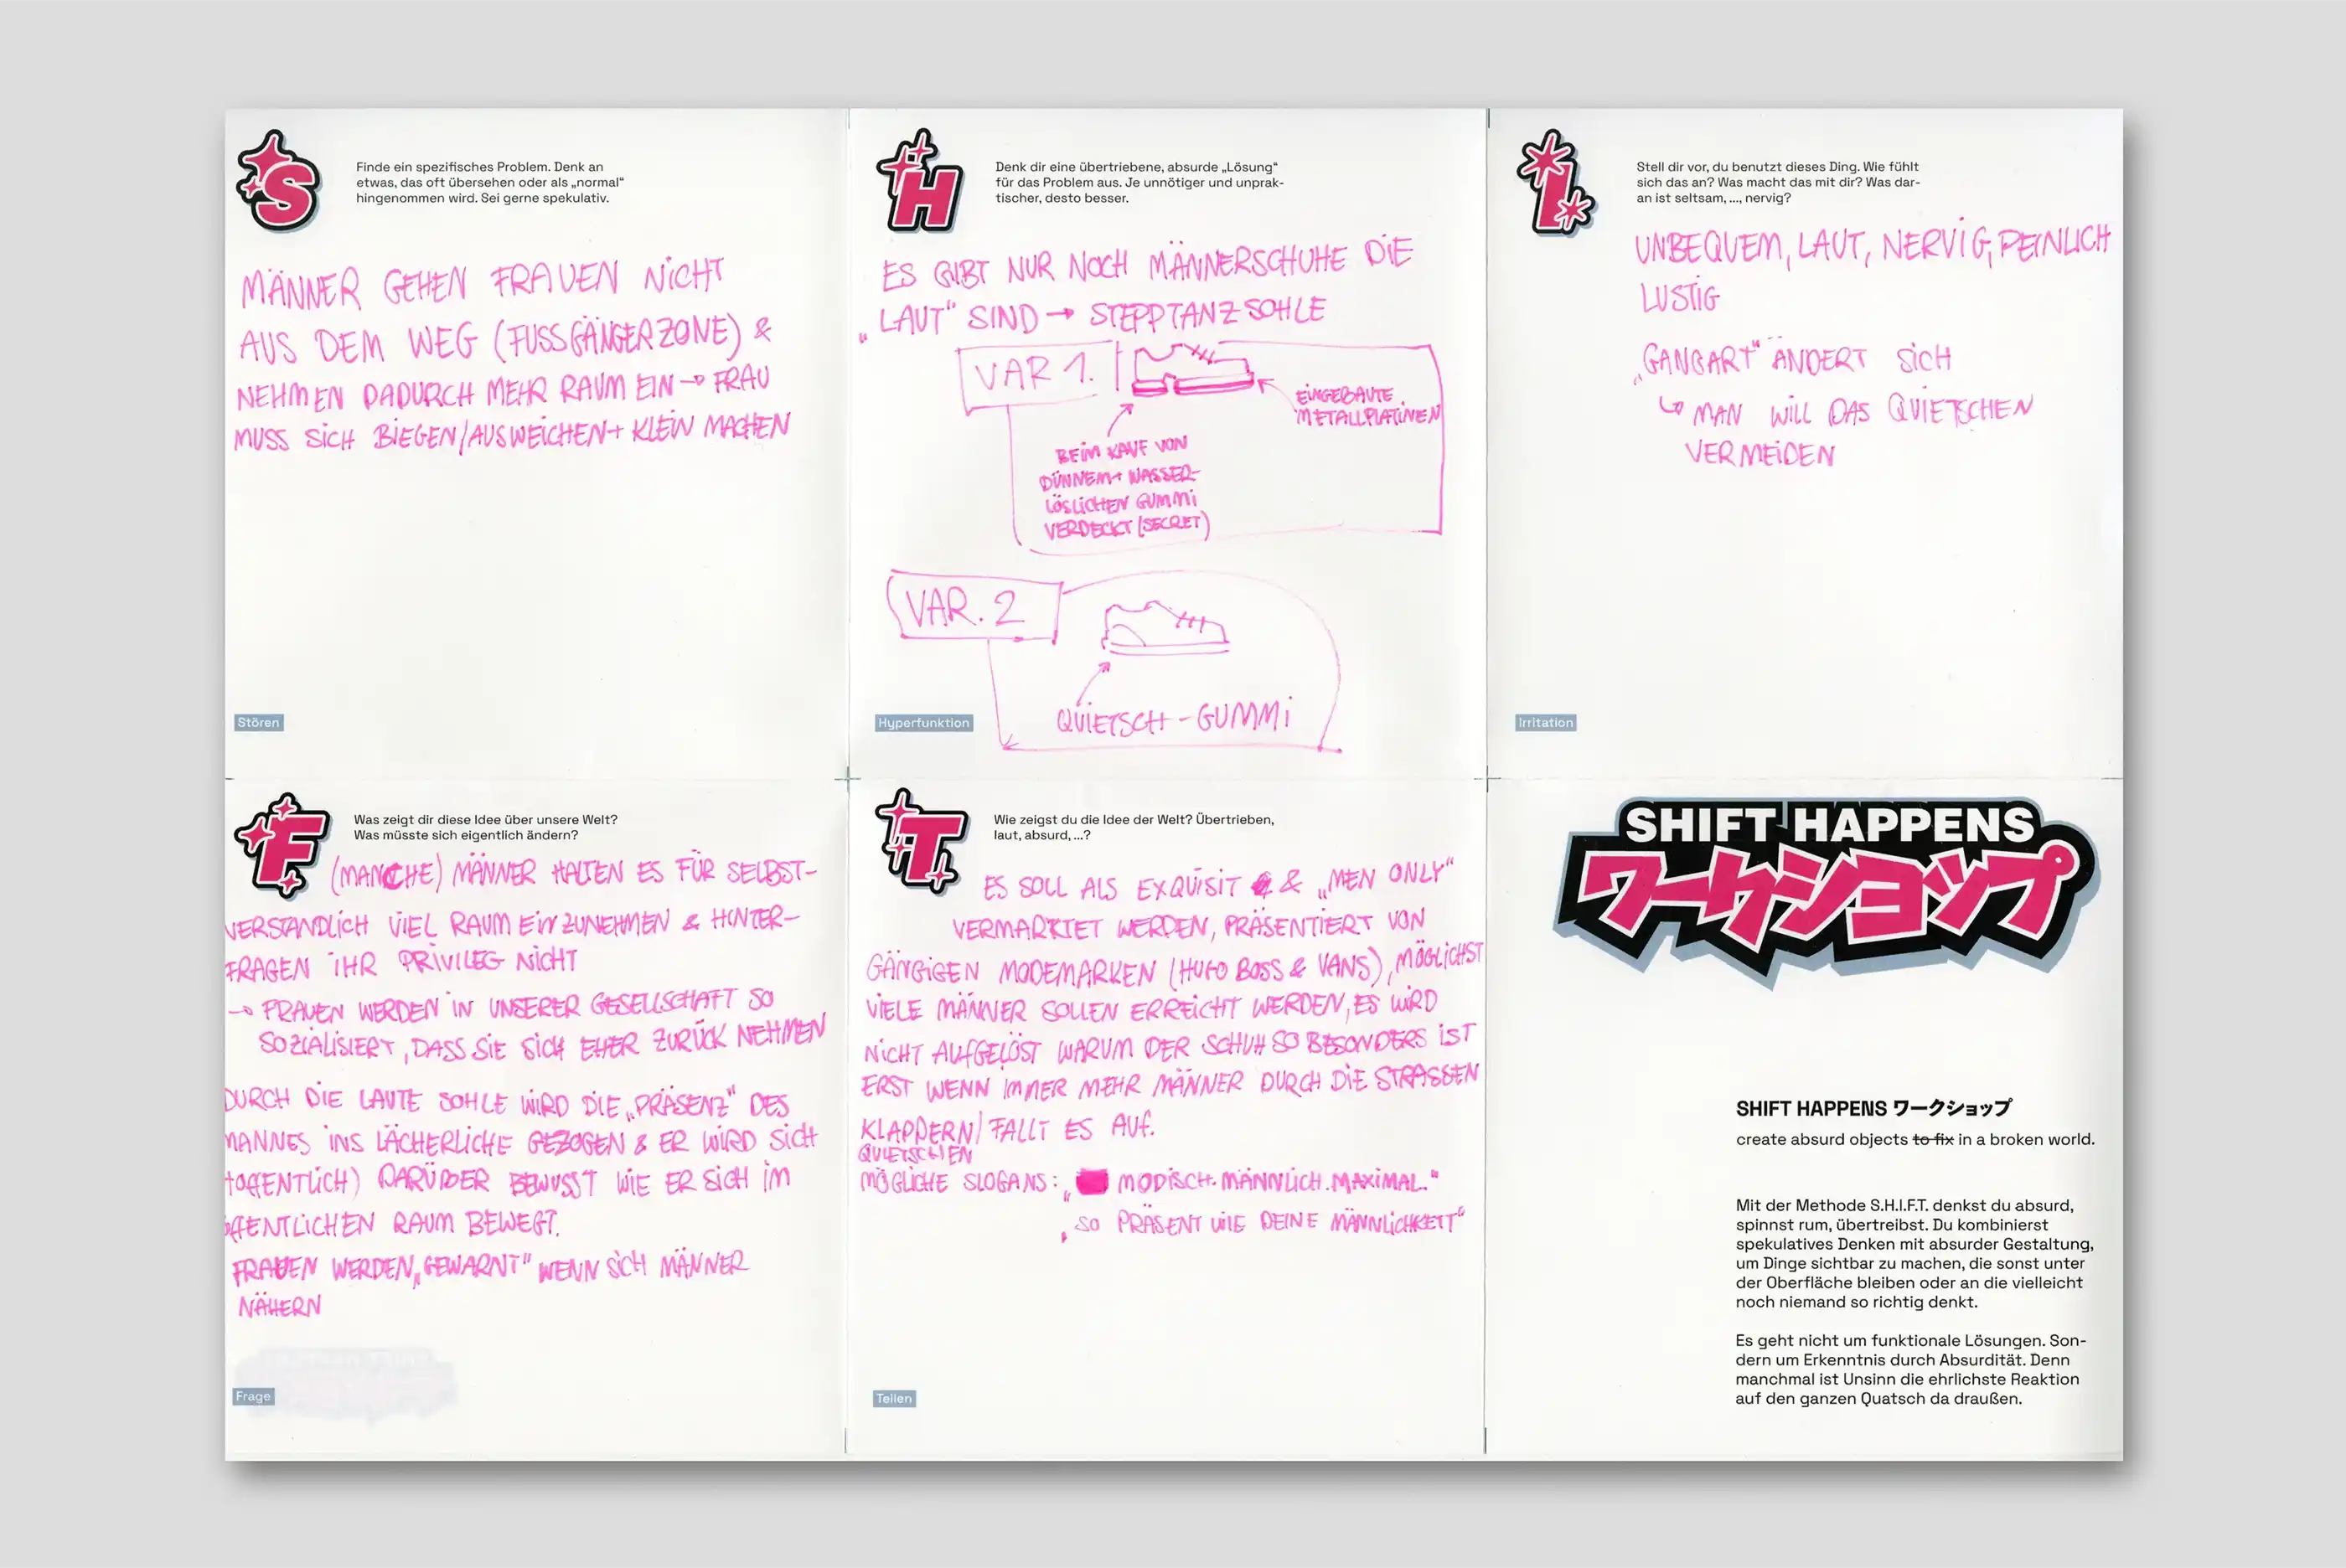 S
Finde ein spezifisches Problem. Denk an
etwas, das oft übersehen oder als „normal“
hingenommen wird. Sei gerne spekulativ.
MÄNNER GEHEN FRAUEN NICHT
AUS DEM WEG (FUSSGÄNGERZONE) &
NEHMEN DADURCH MEHR RAUM EIN → FRAU
MUSS SICH BIEGEN/AUSWEICHEN + KLEIN MACHEN
Stören
H
Denk dir eine übertriebene, absurde „Lösung“
für das Problem aus. Je unnötiger und unprak-
tischer, desto besser.
ES GIBT NUR NOCH MÄNNERSCHUHE DIE
„LAUT“ SIND → STEPPTANZSOHLE
VAR 1.
EINGEBAUTE
METALLPLATINEN
BEIM KAUF VON
DÜNNEM + WASSER-
LÖSLICHEN GUMMI
VERDECKT (SECRET)
VAR. 2
QUIETSCH-GUMMI
Hyperfunktion
I
Stell dir vor, du benutzt dieses Ding. Wie fühlt
sich das an? Was macht das mit dir? Was dar-
an ist seltsam, ..., nervig?
UNBEQUEM, LAUT, NERVIG, PEINLICH
LUSTIG
„GANGART“ ÄNDERT SICH
↳ MAN WILL DAS QUIETSCHEN
VERMEIDEN
Irritation
F
Was zeigt dir diese Idee über unsere Welt?
Was müsste sich eigentlich ändern?
(MANCHE) MÄNNER HALTEN ES FÜR SELBST-
VERSTÄNDLICH VIEL RAUM EINZUNEHMEN & HINTER-
FRAGEN IHR PRIVILEG NICHT
→ FRAUEN WERDEN IN UNSERER GESELLSCHAFT SO
SOZIALISIERT, DASS SIE SICH EHER ZURÜCK NEHMEN
DURCH DIE LAUTE SOHLE WIRD DIE „PRÄSENZ“ DES
MANNES INS LÄCHERLICHE GEZOGEN & ER WIRD SICH
HOFFENTLICH) DARÜBER BEWUSST WIE ER SICH IM
ÖFFENTLICHEN RAUM BEWEGT.
FRAUEN WERDEN „GEWARNT“ WENN SICH MÄNNER
NÄHERN
Frage
T
Wie zeigst du die Idee der Welt? Übertrieben,
laut, absurd, ...?
ES SOLL ALS EXQUISIT & „MEN ONLY“
VERMARKTET WERDEN, PRÄSENTIERT VON
GÄNGIGEN MODEMARKEN (HUGO BOSS & VANS), MÖGLICHST
VIELE MÄNNER SOLLEN ERREICHT WERDEN, ES WIRD
NICHT AUFGELÖST WARUM DER SCHUH SO BESONDERS IST
ERST WENN IMMER MEHR MÄNNER DURCH DIE STRASSEN
KLAPPERN/ FÄLLT ES AUF.
QUIETSCHEN
MÖGLICHE SLOGANS: „MODISCH. MÄNNLICH. MAXIMAL.“
„SO PRÄSENT WIE DEINE MÄNNLICHKEIT“
Teilen
SHIFT HAPPENS
ワークショップ
SHIFT HAPPENS ワークショップ
create absurd objects to fix in a broken world.
Mit der Methode S.H.I.F.T. denkst du absurd,
spinnst rum, übertreibst. Du kombinierst
spekulatives Denken mit absurder Gestaltung,
um Dinge sichtbar zu machen, die sonst unter
der Oberfläche bleiben oder an die vielleicht
noch niemand so richtig denkt.
Es geht nicht um funktionale Lösungen. Son-
dern um Erkenntnis durch Absurdität. Denn
manchmal ist Unsinn die ehrlichste Reaktion
auf den ganzen Quatsch da draußen.